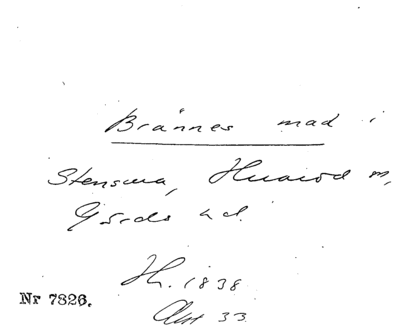 Brännes mad i
Stensma, Hvarod m,
Gärds hd.
H. 1838
Akt 33.
Nr 7826.